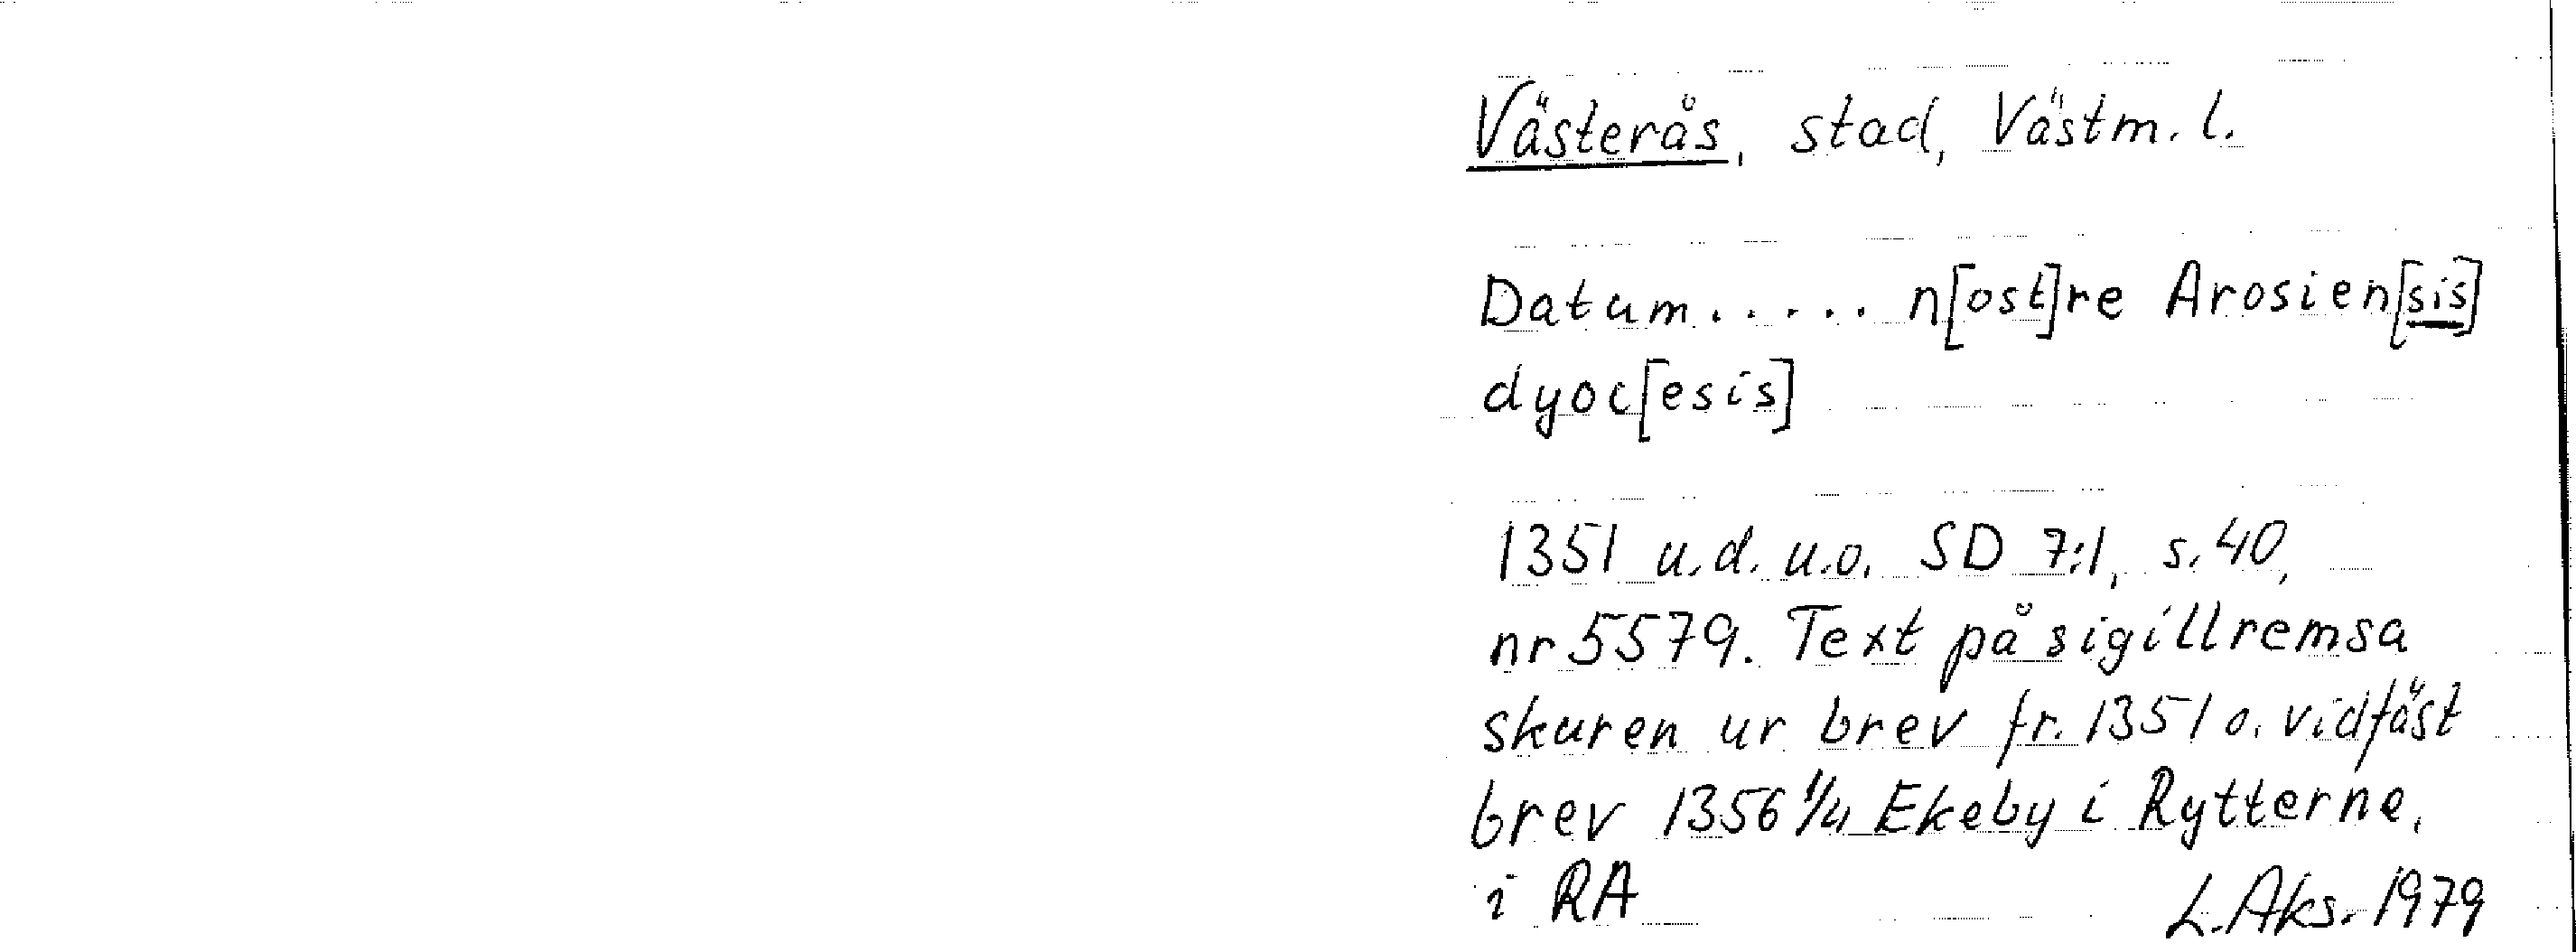 Västerås, stad, Västm. l.
Datum..... n[ost]re Arosien[sis]
dyoc[esis]
1351 u.d. u.o. SD 7:1, s. 40,
nr 5579. Text på sigillremsa
skuren ur brev fr. 1351 o. vidfäst
brev 1356 1/4 Ekeby i Rytterne,
i RA
L. Aks. 1979